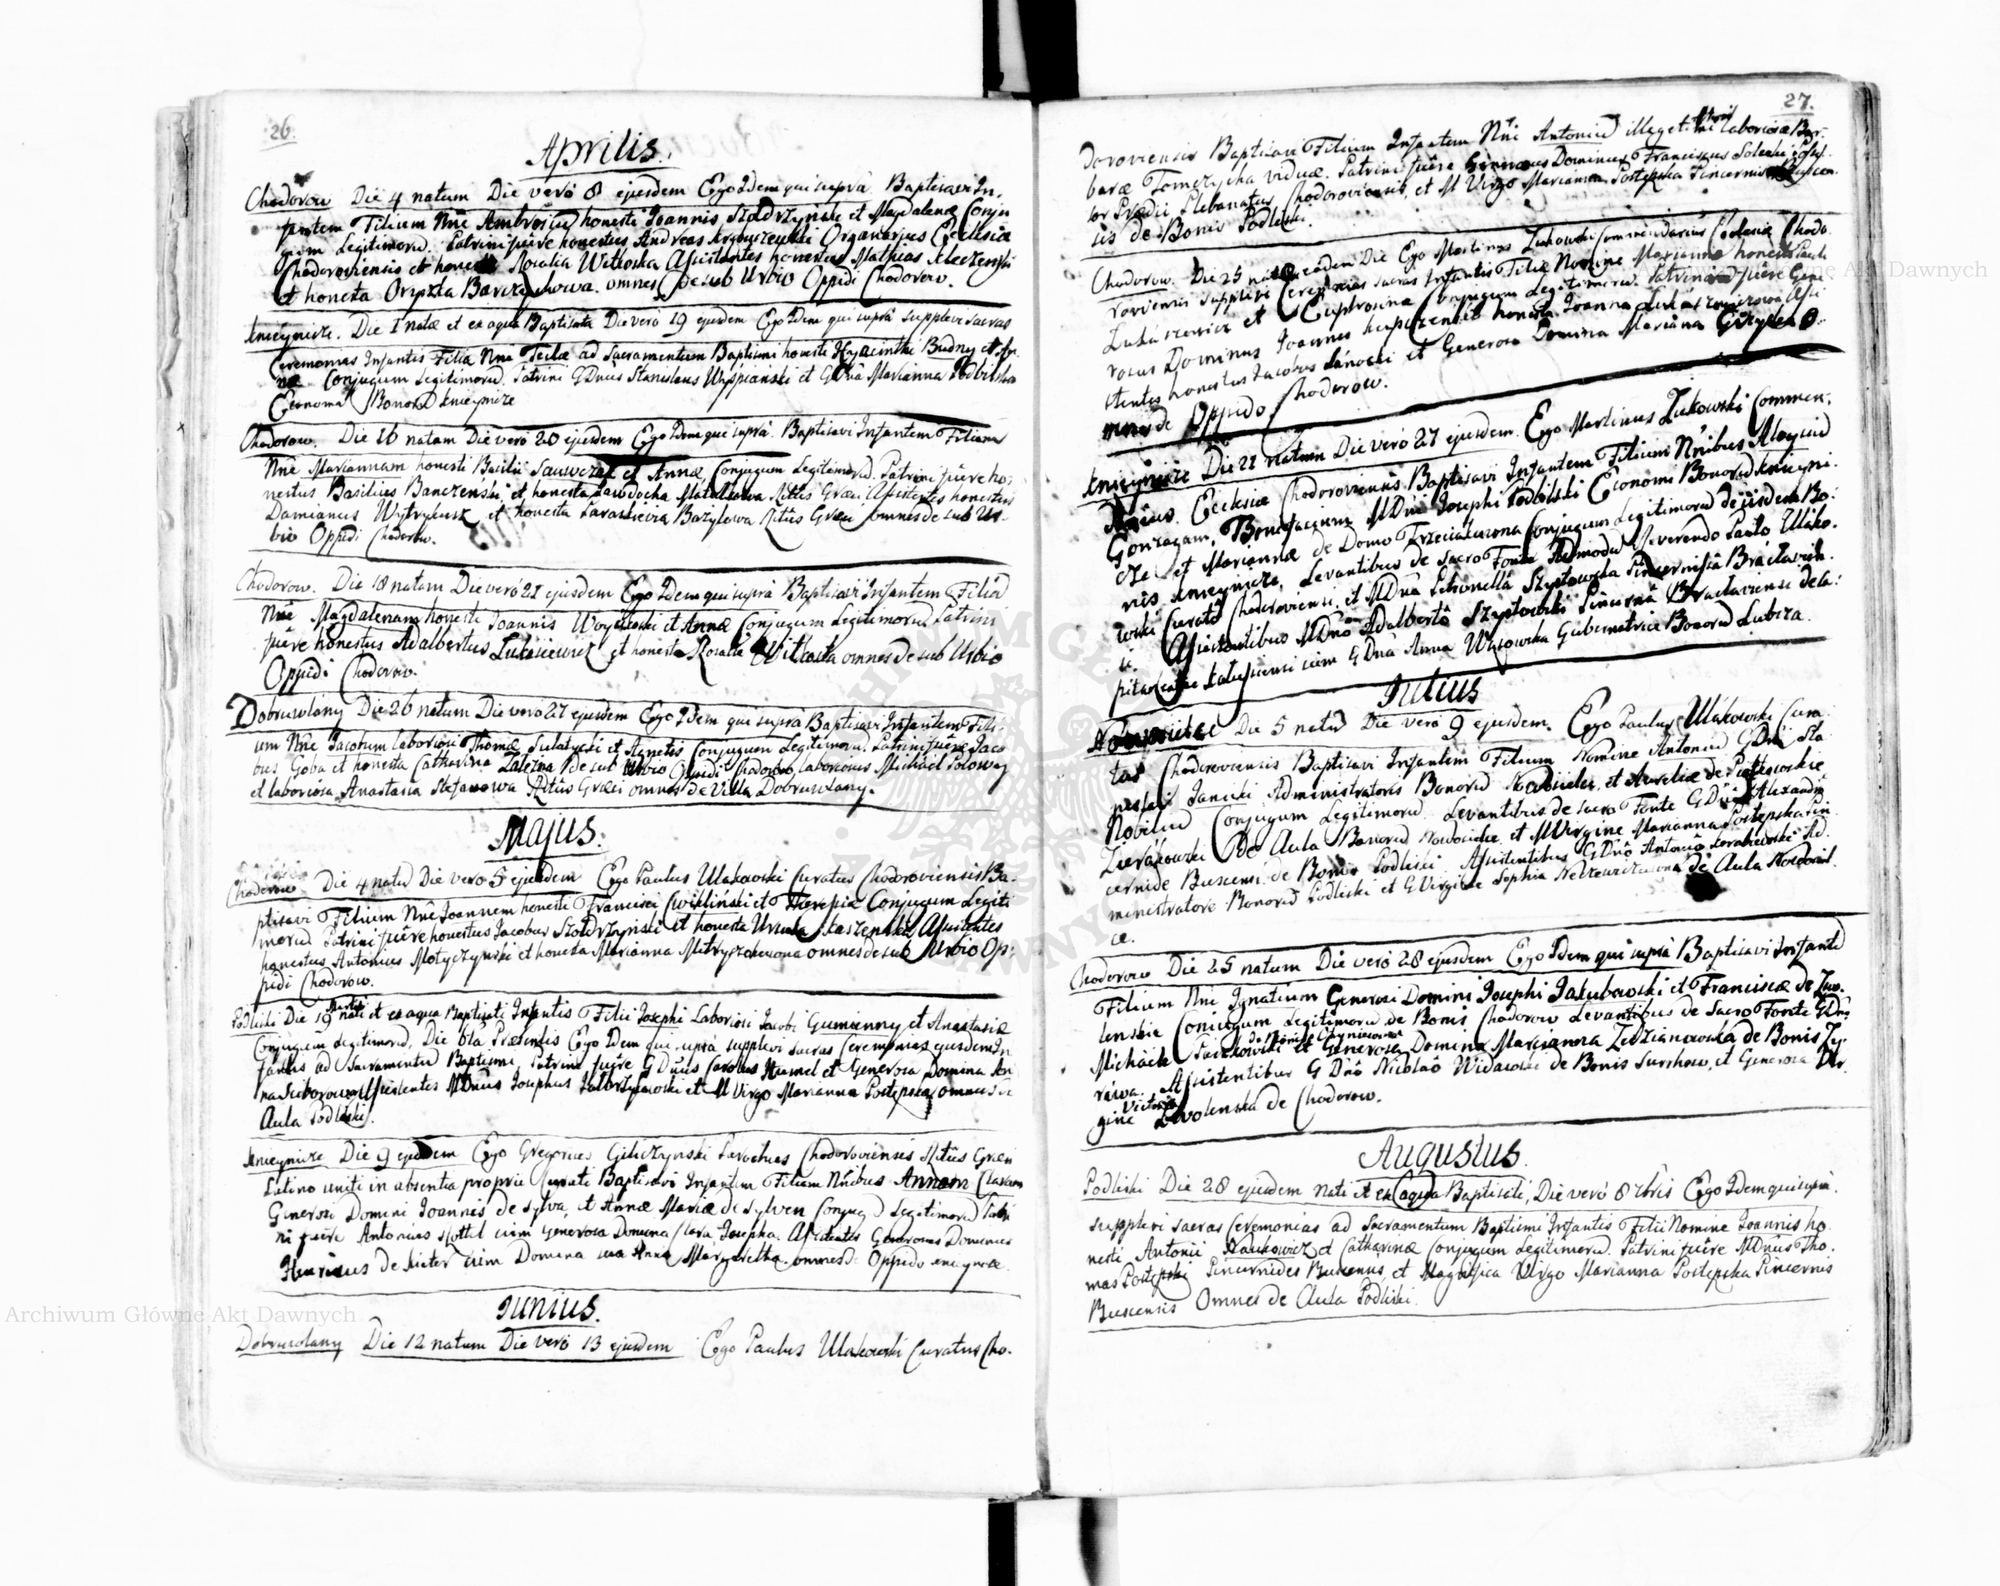 26.
Aprilis.
Chodorow Die 4 natum Die veró 8 ejusdem Ego Idem qui suprà Baptisavi In-
fantem Filium Nne Ambrosiũ honesti Joannis Szołdrzyński et Magdalenæ Conju
gum Legitimorũ. Patrini fuêre honestus Andreas Organarius Ecclesiæ
Chodoroviensis et honesta Rosalia Witkoska Assistentes honestus Mathias
et honesta omnes de sub Urbio Oppidi Chodorow.
Knieynicze. Die 1 natæ et ex aqua Baptisata Die veró 19 ejusdem Ego Idem qui suprà supplevi sacras
Ceremonias Infantis Filiæ Nne Teclæ ad Sacramentum Baptismi honesti Hyacinthi Budny et An-
næ Conjugum Legitimorũ. Patrini GDnus Stanislaus Wyspianski et GDna Marianna Podbilska
Economa Bonorũ Knieynicze
Chodorow. Die 16 natam Die veró 20 ejusdem Ego Idem qui suprà Baptisavi Infantem Filiam
Nne Mariannam honesti Basilii et Annæ Conjugum Legitimorũ. Patrini fuêre ho-
nestus Basilius Banczenski, et honesta Ritus Græci Assistentes honestus
Damianus et honesta Bazylowa Ritus Græci omnes de sub Ur-
bio Oppidi Chodorow.
Chodorow. Die 18 natam Die veró 21 ejusdem Ego Idem qui suprà Baptisavi Infantem Filiã
Nne Magdalenam honesti Joannis et Annæ Conjugum Legitimorũ Patrini
fuêre honestus Adalbertus et honesta Rosalia Witkoska omnes de sub Urbio
Oppidi Chodorow.
Dobrowlany Die 26 natum Die veró 27 ejusdem Ego Idem qui suprà Baptisavi Infantem Fili-
um Nne Jacobum laboriosi Thomæ et Agnetis Conjugum Legitimorũ. Patrini fuêre Jaco-
bus Goba et honesta Catharina Zalezna de sub Urbio Oppidi Chodorow, laboriosus Michael
et laboriosa Anastasia Stefanowa Ritus Græci omnes de Villa Dobrowlany.
Majus.
Chodorow Die 4 natũ Die veró 5 ejusdem Ego Paulus Ulakowski Curatus Chodoroviensis Ba-
ptisavi Filium Nne Joannem honesti Francisci Cwikliński et Theresiæ Conjugum Legiti
morũ Patrini fuêre honestus Jacobus Szołdrzyński et honesta Ursula Assistentes
honestus Antonius Motyczynski et honesta Marianna omnes de sub Urbio Op-
pidi Chodorow.
Podliski Die 19 Martii nati et ex aqua Baptisati Infantis Filii Josephi Laboriosi Jacobi Gumienny et Anastasiæ
Conjugum Legitimorũ, Die 6ta Præsentis Ego Idem qui suprà supplevi sacras Ceremonias ejusdem In
fantis ad Sacramentũ Baptismi, Patrini fuêre GDnus Carolus Humel et Generosa Domina An
na Assistentes MDnus Josephus et M Virgo Marianna Postępska omnes de
Aula Podliski.
Knieynicze Die 9 ejusdem Ego Gregorius Parochus Chodoroviensis Ritus Græci
Latino uniti in absentia proprii Curati Baptisavi Infantem Filiam Nnibus Annam Claram
Generosi Domini Joannis de Sylva, et Annæ Mariæ de Sylven Conjugũ Legitimorũ Patri
ni fuêre Antonius cum Generosa Domina Clara Josepha. Assistentes Generosus Dominus
Henricus de cum Domina sua Anna Margaretha omnes de Oppido
Junius.
Dobrowlany Die 12 natum Die veró 13 ejusdem Ego Paulus Ulakowski Curatus Cho-
27.
doroviensis Baptisavi Filium Infantem Nne Antoniũ illegitimi laboriosæ Bar-
baræ Tomczycha viduæ. Patrini fuêre Generosus Dominus Franciscus
Prædii Plebanatus Chodoroviensis, et M Virgo Marianna Postępska
de Bonis Podliski.
Chodorow. Die 25 eadem Die Ego Martinus Zukowski Commendarius Ecclesiæ Chodo-
roviensis supplevi Ceremonias sacras Infantis Filiæ Nomine Mariannæ honesti Pauli
Lukaszewicz et Euphrosina Conjugum Legitimorũ. Patrini fuêre Gene
rosus Dominus Joannes et honesta Joanna Assi
stentes honestus Jacobus et Generosa Domina Mariana
omnes de Oppido Chodorow.
Knieynicze Die 21 natum Die veró 27 ejusdem. Ego Martinus Zukowski Commen-
darius Ecclesiæ Chodoroviensis Baptisavi Infantem Filium Nnibus Aloysiũ
Gonzagam, Bonifacium MDni Josephi Podbilski Economi Bonorũ Knieyni-
cze et Mariannæ de Domo Conjugum Legitimorũ de iisdem Bo-
nis Knieynicze, Levantibus de Sacro Fonte Admodũ Reverendo Paulo Ulako-
wski Curato Chodoroviensi, et MDna Petronella Szyptowska Pincernissa Braclavien-
si. Assistentibus MDno Adalberto Szyptowski Pincerna Braclaviensi de Ca-
cum GDna Anna Wysowska Gubernatrice Bonorũ Lubsza.
Julius
Die 5 natũ Die veró 9 ejusdem. Ego Paulus Ulakowski Cura-
tus Chodoroviensis Baptisavi Infantem Filium Nomine Antoniũ GDni
Janicki Administratoris Bonorũ et Aureliæ de
Nobiliũ Conjugum Legitimorũ. Levantibus de sacro Fonte GDno Alexandro
Zierakowski de Aula Bonorũ et M Virgine Marianna Postępska Pin
cernide Buscensi de Bonis Podliski Assistentibus GDno Antonio Ad-
ministratore Bonorũ Podliski et G Virgine Sophia de Aula
ce.
Chodorow Die 25 natum Die veró 28 ejusdem Ego Idem qui suprà Baptisavi Infantẽ
Filium Nne Ignatium Generosi Domini Josephi Jakubowski et Franciscæ de Zwo-
lenskie Conjugum Legitimorũ de Bonis Chodorow Levantibus de Sacro Fonte GDno
Michaele Paszkowski de Bonis et Generosa Domina Marianna de Bonis Zy-
rawa. Assistentibus GDno Nicolao Widawski de Bonis et Generosa Vir-
gine Victoria Zwolenska de Chodorow.
Augustus.
Podliski Die 28 ejusdem nati et ex aqua Baptisati, Die veró 8 7bris Ego Idem qui suprà
supplevi sacras Ceremonias ad Sacramentum Baptismi Infantis Filii Nomine Joannis ho-
nesti Antonii et Catharinæ Conjugum Legitimorũ. Patrini fuêre MDnus Tho-
mas Postępski Pincernides Buscensis, et Magnifica Virgo Marianna Postępska Pincernis
Buscensis Omnes de Aula Podliski.
Archiwum Główne Akt Dawnych